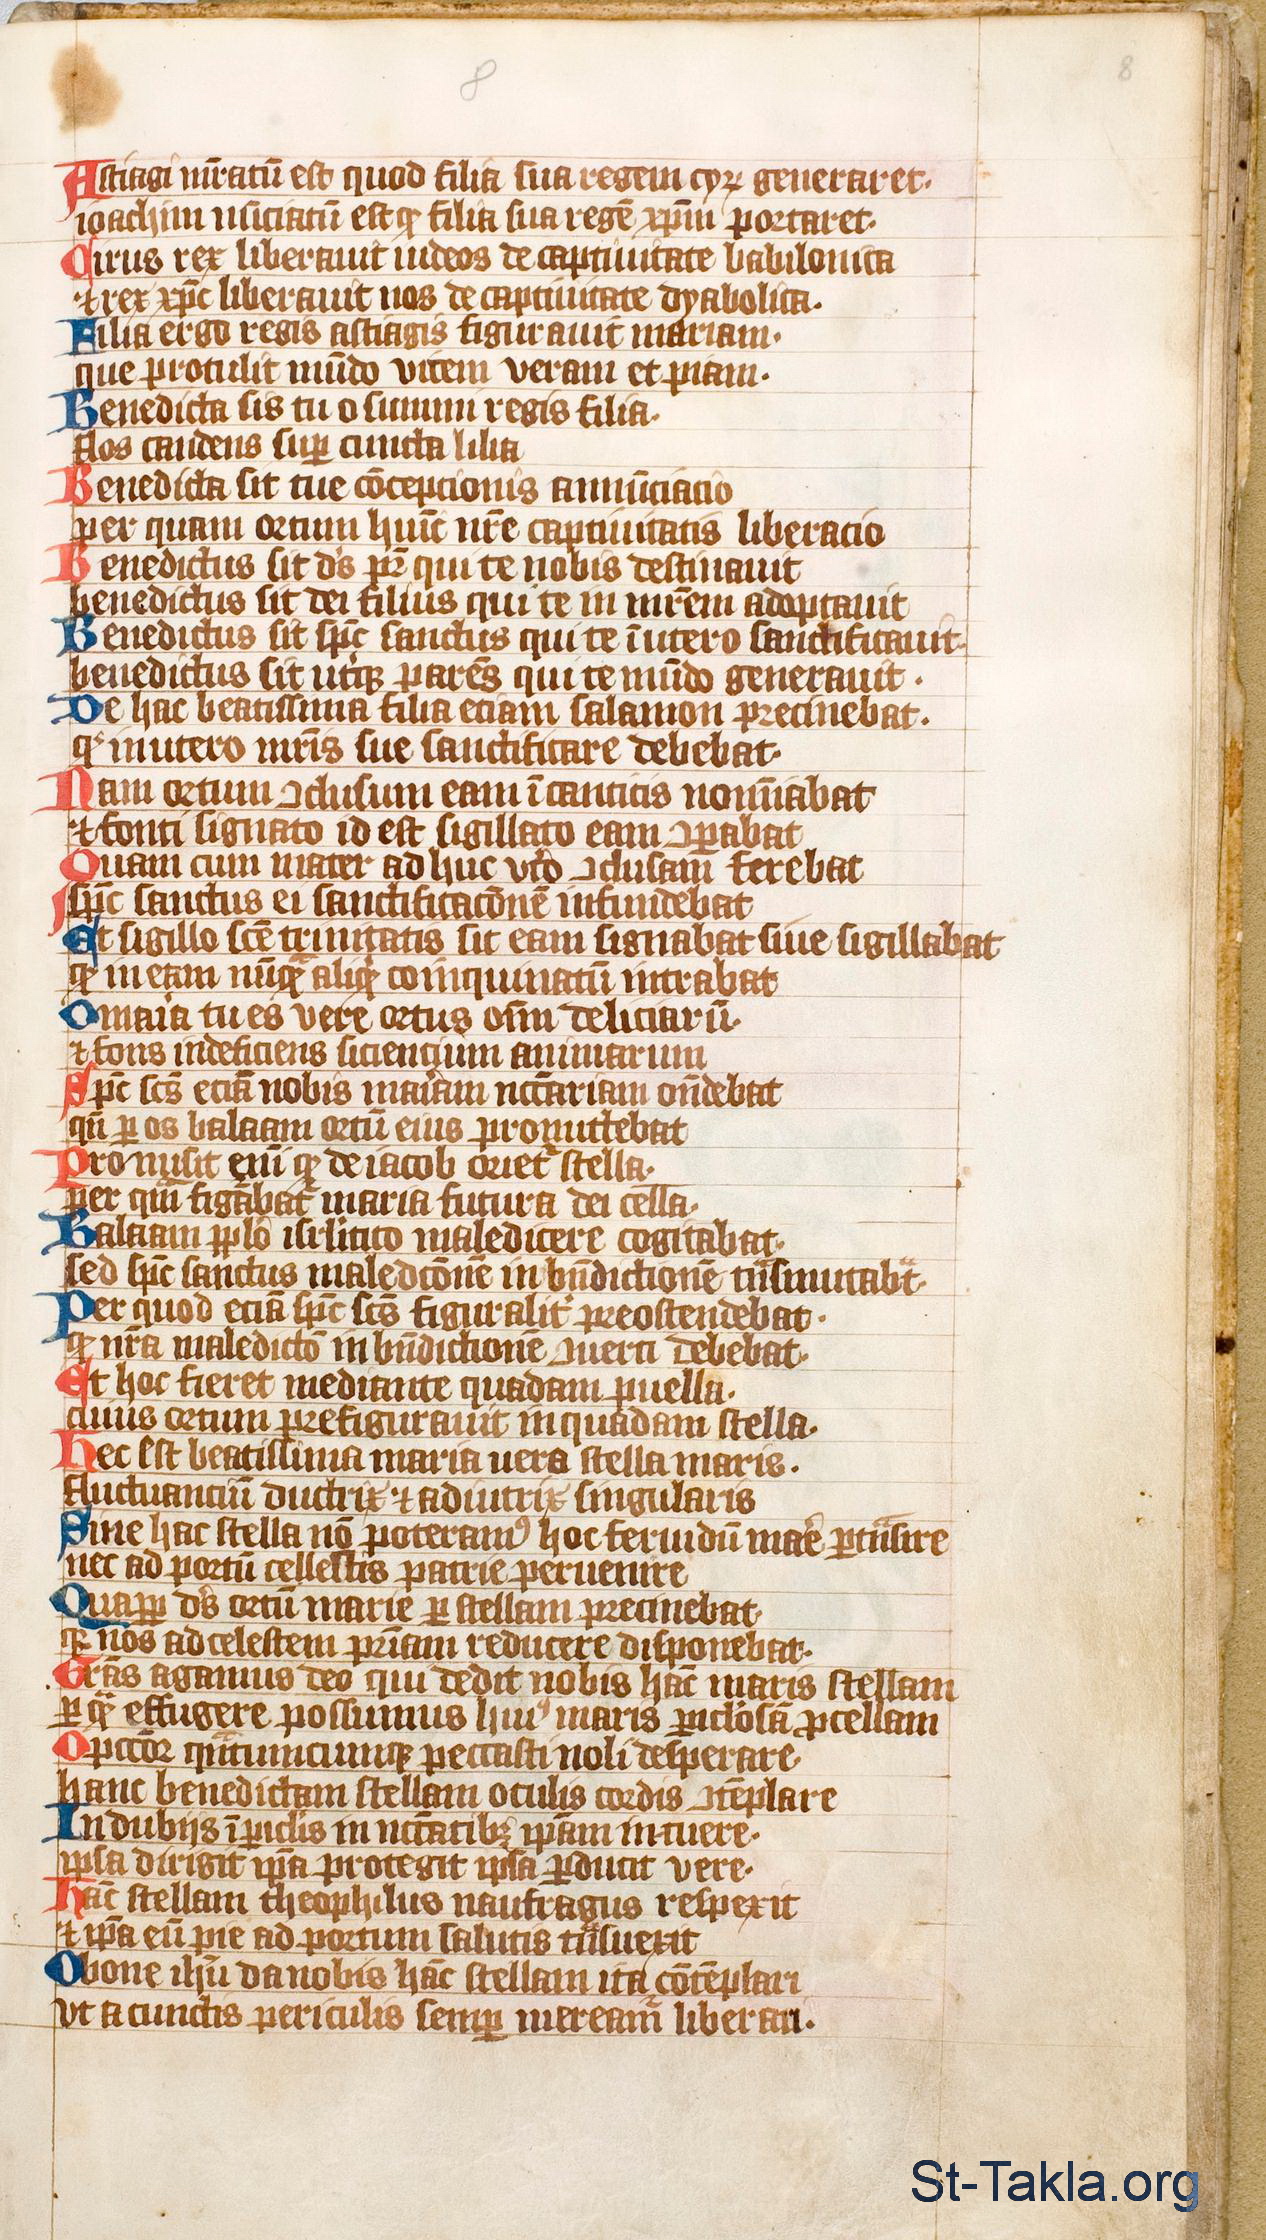 8
8
Astiagi mr̄atū est quod filia sua regem cyꝝ generaret.
ioachim nūciatū est ꝙ filia sua regē xp̄m portaret.
Cirus rex liberauit iudeos de captiuitate babilonica
⁊ rex xp̄c liberauit nos de captiuitate dyabolica.
Filia ergo regis astiagis figurauit mariam.
que protulit mūdo vitem veram et piam.
Benedicta sis tu o summi regis filia.
flos candens suꝑ cuncta lilia
Benedicta sit tue cōcepcionis annūciacio
per quam ortum huīc nr̄e captiuitatis liberacio
Benedictus sit dſ̄ pr̄ qui te nobis destinauit
benedictus sit dei filius qui te in mr̄em adoptauit
Benedictus sit sp̄c sanctus qui te ī utero sanctificauit.
benedictus sit utꝫ parēs qui te mūdo generauit.
De hac beatissima filia eciam salamon precinebat.
ꝙ in utero mr̄is sue sanctificare debebat.
Nam ortum ꝯclusum eam ī canticis nomīabat
⁊ fonti signato id est sigillato eam ꝯꝑabat
Quam cum mater ad huc vt̄o ꝯclusam ferebat
sp̄c sanctus ei sanctificacōnē infundebat
Et sigillo scē trinitatis sic eam signabat siue sigillabat
ꝙ in eam nūꝙ̄ aliꝙ̄ coinquinatū intrabat
O maīa tu es vere ortus oīm deliciarū.
⁊ fons indeficiens siciencium animarum
Sp̄c scs̄ eciā nobis maīam nccāriam on̄debat
qn̄ ꝑ os balaam ortū eius promittebat
Promisit em̄ ꝙ de iacob oriet᷑ stella.
per quā figābat᷑ maria futura dei cella.
Balaam ppl̄o isrl̄itico maledicere cogitabat.
sed sp̄c sanctus maledcōnē in bn̄dictionē tn̄smutabt̄.
Per quod eciā sp̄c scs̄ figuralit̄ preostendebat.
ꝙ nr̄a maledictō in bn̄dictionē ꝯuerti debebat.
Et hoc fieret mediante quadam puella.
cuius ortum prefigurauit in quadam stella.
Hec est beatissima maria uera stella maris.
fluctuanciū ductrix ⁊ adiutrix singularis
Sine hac stella nō poteramꝰ hoc feruidū mare ꝑtn̄sire
nec ad portū cellestis patrie peruenire
Quaꝓꝑ ds̄ ortū marie ꝑ stellam precinebat.
ꝙ nos ad celestem pr̄iam reducere disponebat.
Grās agamus deo qui dedit nobis hāc maris stellam
ꝑ ꝙ̄ effugere possumus huiꝰ maris ꝑiclōsā ꝓcellam
O pccōr qn̄tumcumqꝫ peccasti noli desperare.
hanc benedictam stellam oculis cordis ꝯtēplare
In dubijs ī ꝑiclis in nccātibꝫ ip̄am intuere.
ipsa dirigit ip̄a protegit ipsa ꝑducit vere.
Hāc stellam theophilus naufragus respexit
⁊ ip̄a eū pie ad portum salutis tn̄suexit
O bone ih̄u da nobis hāc stellam ita cōtēplari
vt a cunctis periculis semꝑ meream᷑ liberari.
St-Takla.org